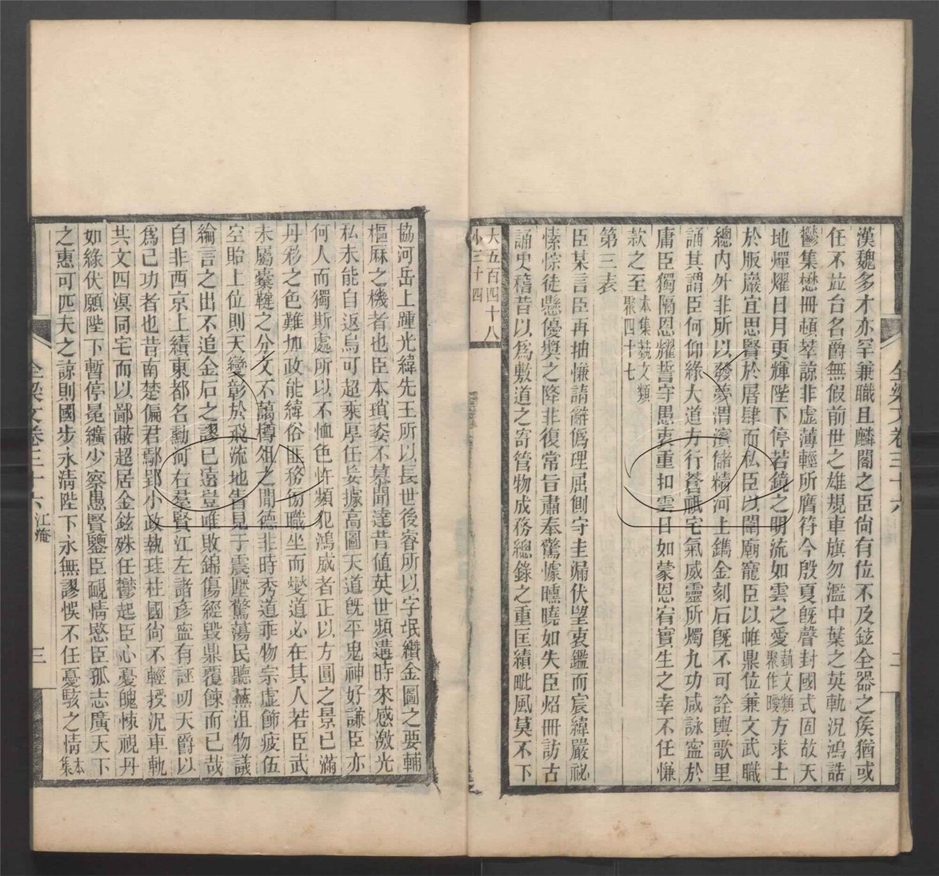 漢魏多才亦罕兼職且麟閣之臣尙有位不及鉉全器之矦猶或
任不竝台名爵無假前世之雄規車旗勿濫中葉之英軌況鴻誥
鬱集懋冊頓萃諒非虛薄輕所膺荷今殷夏旣聲封國式固故天
地燀耀日月更輝陛下停若鏡之明流如雲之愛藝文類聚作曖方求士
於版巖宜思賢於屠肆而私臣以闈廟寵臣以帷鼎位兼文武職
總內外非所以發夢渭濱儲精河上鐫金刻石旣不可詮輿歌里
誦其謂臣何仰綠大道方行蒼祇宅氣威靈所燭九功咸詠寧於
庸臣獨隔恩耀誓守愚衷重扣雲日如蒙恩宥實生之幸不任慊
款之至本集藝文類聚四十七
第三表
臣某言臣再抽慊請辭僞理屈側守圭漏伏望衷鑑而宸緯嚴祕
愫悰徒懸優奬之降非復常旨肅奉驚懅曛曉如失臣炤冊訪古
誦史稽昔以爲敷道之寄管物成務總錄之重匡績毗風莫不下
大五百四十八
小三十四
全梁文卷三十六
二
協河岳上踵光緯先王所以長世後睿所以字氓纘金圖之要輔
樞麻之機者也臣本瑣姿不慕聞達昔値英世頻遘時來感激光
私未能自返烏可超乘厚任妄據高圖天道旣平鬼神好謙臣亦
何人而獨斯處所以不恤色忤頻犯鴻威者正以方圓之景已滿
丹移之色難加政能緯俗
職坐而變道必在其人若臣武
未屬櫜鞬之分文不藹樽俎之閒德非時秀道乖物宗虛飾疲伍
空貽上位則天變彰於飛流地眚見于震壓驚蕩民聽蕪沮物議
綸言之出不追金石之謬已遠豈唯敗錦傷經毀鼎覆餗而已哉
自非西京上績東都名勳何右羣賢江左諸彥寧有誣叨天爵以
爲己功者也昔南楚偏君鄢郢小政執珪柱國尙不輕授況車軌
共文四溟同宅而以鄙蔽超居金鉉殊任鬱起臣心憂魄悚視丹
如綠伏願陛下暫停冕纊少察愚賢鑒臣覼情愍臣孤志廣天下
之惠可匹夫之諒則國步永淸陛下永無謬悞不任憂駭之情本集
全梁文卷三十六 江淹
三